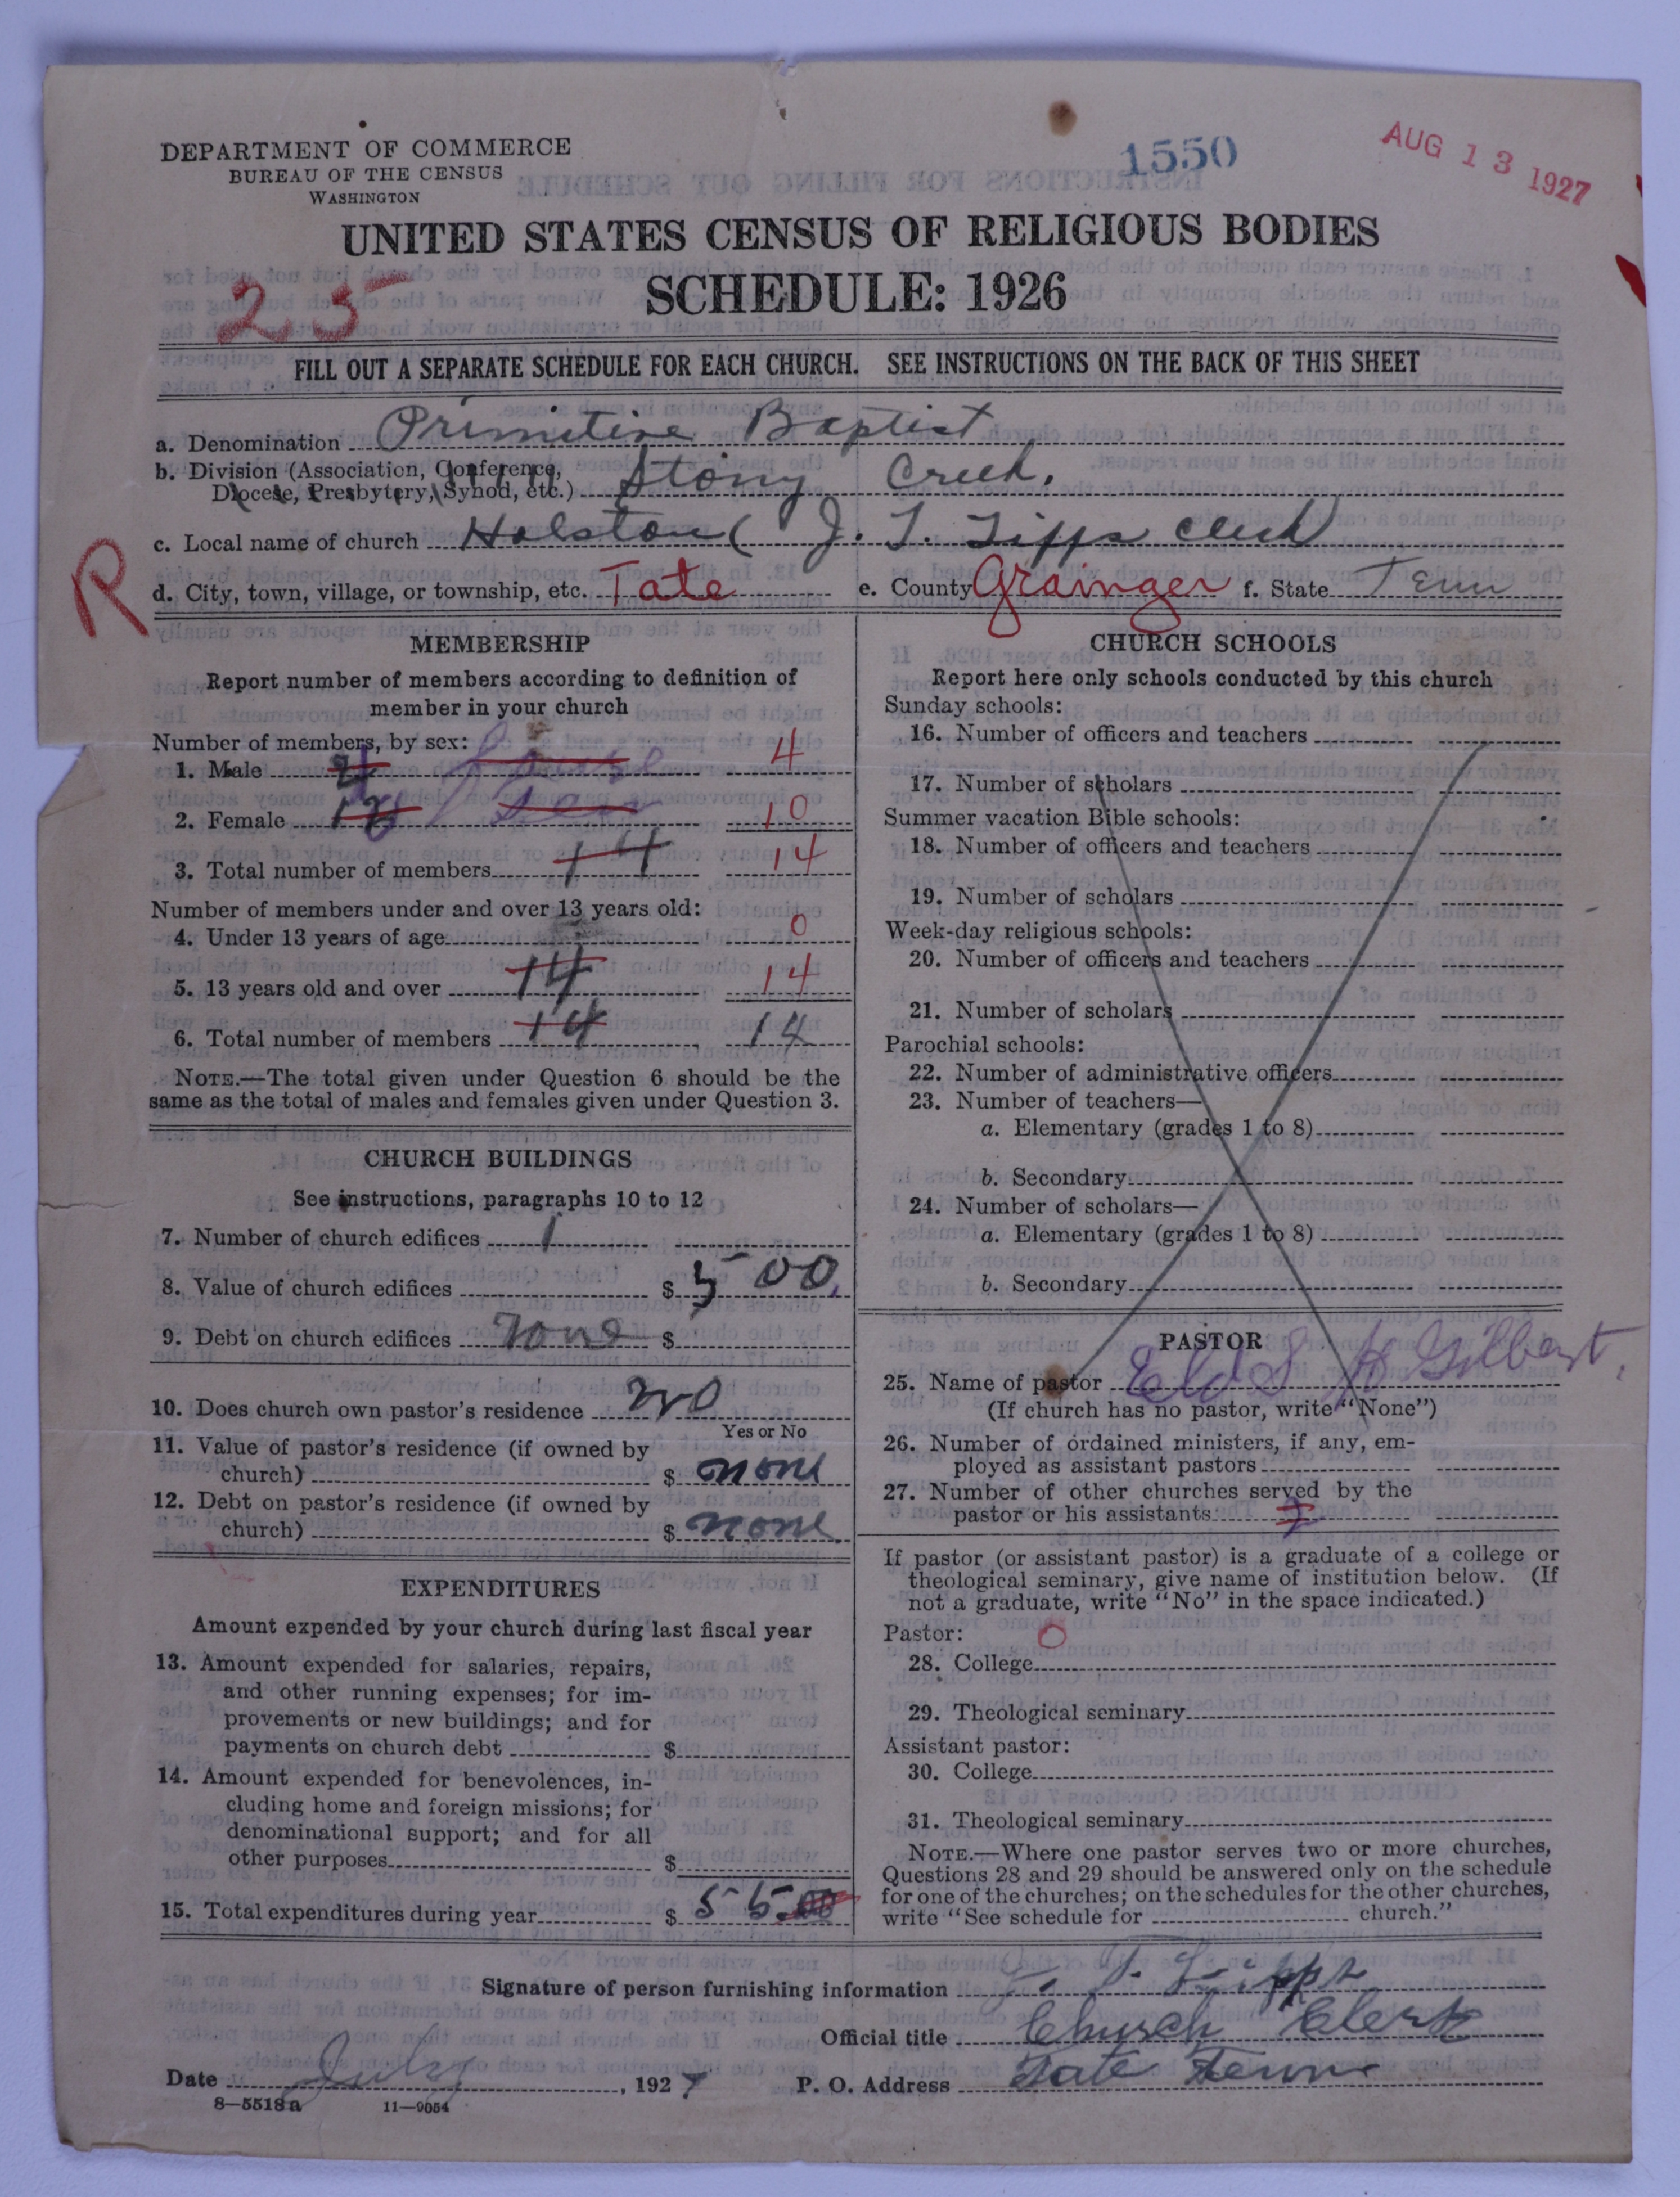 DEPARTMENT OF COMMERCE
BUREAU OF THE CENSUS
WASHINGTON
1550
AUG 13 1927
UNITED STATES CENSUS OF RELIGIOUS BODIES
SCHEDULE: 1926
25
FILL OUT A SEPARATE SCHEDULE FOR EACH CHURCH. SEE INSTRUCTIONS ON THE BACK OF THIS SHEET
a. Denomination Primitive Baptist
b. Division (Association, Conference,
Diocese, Presbytery, Synod, etc.) Stony Creek.
c. Local name of church Holston ( J. T. Tipps clerk)
R
d. City, town, village, or township, etc. Tate e. County Grainger f. State Tenn
MEMBERSHIP
Report number of members according to definition of
member in your church
Number of members, by sex:
1. Male 4
2. Female 10
3. Total number of members 14 14
Number of members under and over 13 years old:
4. Under 13 years of age 0
5. 13 years old and over 14 14
6. Total number of members 14 14
NOTE.—The total given under Question 6 should be the
same as the total of males and females given under Question 3.
CHURCH BUILDINGS
See instructions, paragraphs 10 to 12
7. Number of church edifices 1
8. Value of church edifices $ 500
9. Debt on church edifices None $
10. Does church own pastor's residence no
Yes or No
11. Value of pastor's residence (if owned by
church) $ none
12. Debt on pastor's residence (if owned by
church) $ none
EXPENDITURES
Amount expended by your church during last fiscal year
13. Amount expended for salaries, repairs,
and other running expenses; for im-
provements or new buildings; and for
payments on church debt $
14. Amount expended for benevolences, in-
cluding home and foreign missions; for
denominational support; and for all
other purposes $
15. Total expenditures during year $ 55.00
CHURCH SCHOOLS
Report here only schools conducted by this church
Sunday schools:
16. Number of officers and teachers
17. Number of scholars
Summer vacation Bible schools:
18. Number of officers and teachers
19. Number of scholars
Week-day religious schools:
20. Number of officers and teachers
21. Number of scholars
Parochial schools:
22. Number of administrative officers
23. Number of teachers—
a. Elementary (grades 1 to 8)
b. Secondary
24. Number of scholars—
a. Elementary (grades 1 to 8)
b. Secondary
PASTOR
25. Name of pastor Eld S H Gilbert.
(If church has no pastor, write "None")
26. Number of ordained ministers, if any, em-
ployed as assistant pastors
27. Number of other churches served by the
pastor or his assistants
If pastor (or assistant pastor) is a graduate of a college or
theological seminary, give name of institution below. (If
not a graduate, write "No" in the space indicated.)
Pastor: 0
28. College
29. Theological seminary
Assistant pastor:
30. College
31. Theological seminary
NOTE.—Where one pastor serves two or more churches,
Questions 28 and 29 should be answered only on the schedule
for one of the churches; on the schedules for the other churches,
write "See schedule for church."
Signature of person furnishing information J. T. Tipps
Official title Church Clerk
Date July, 1927 P. O. Address Tate Tenn
8—5518a 11—9054